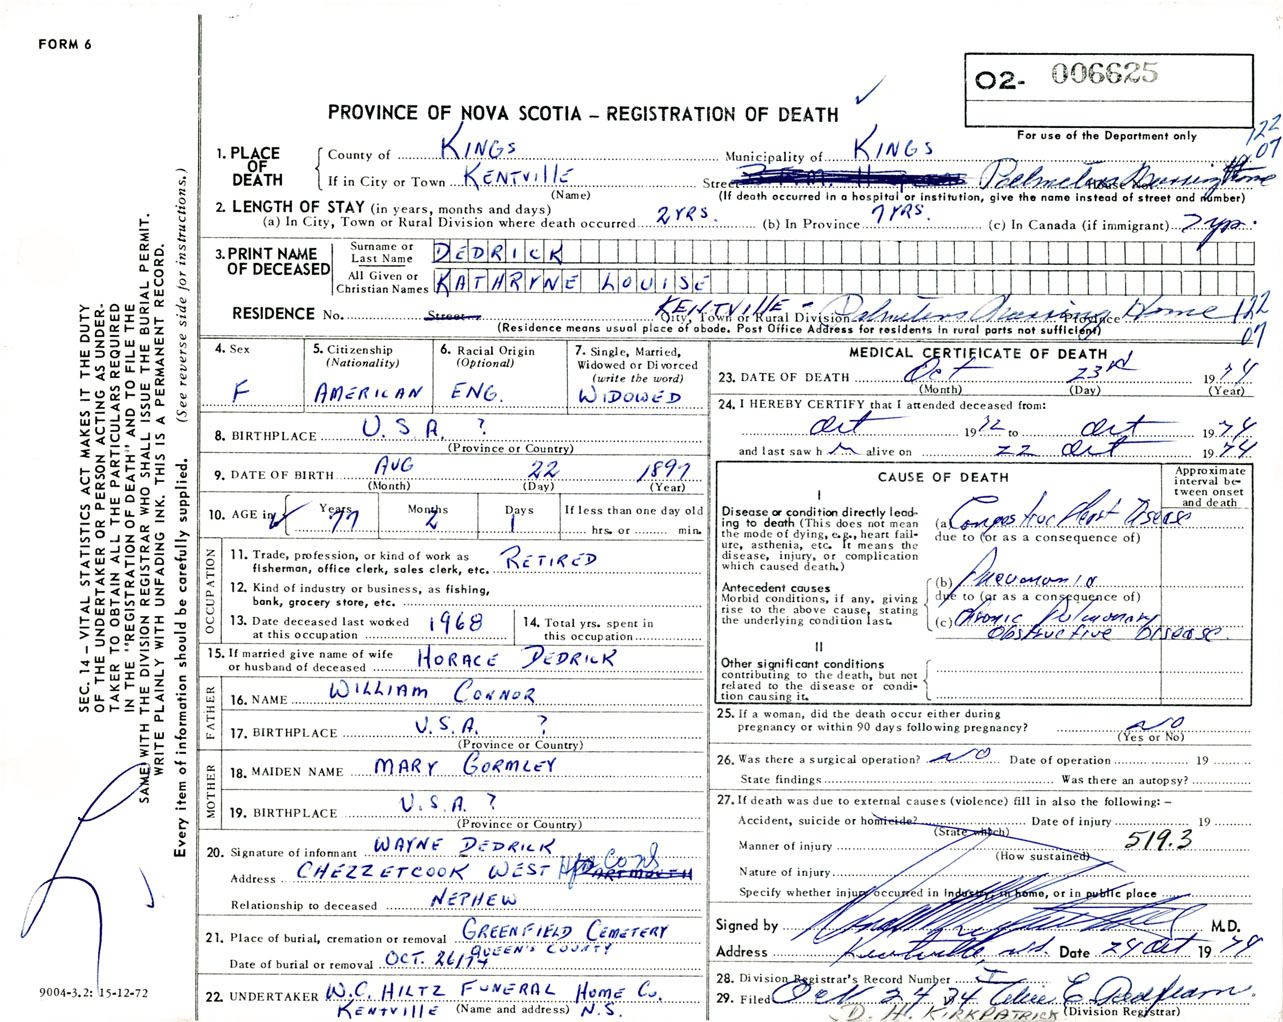 FORM 6
O2- 006625
PROVINCE OF NOVA SCOTIA – REGISTRATION OF DEATH
For use of the Department only
122
07
1. PLACE OF DEATH
County of KINGS Municipality of KINGS
If in City or Town KENTVILLE Street Palmeters Nursing Home
(Name) (If death occurred in a hospital or institution, give the name instead of street and number)
2. LENGTH OF STAY (in years, months and days)
(a) In City, Town or Rural Division where death occurred 2 YRS. (b) In Province 7 YRS. (c) In Canada (if immigrant) 7 yrs.
3. PRINT NAME OF DECEASED
Surname or Last Name DEDRICK
All Given or Christian Names KATHRYNE LOUISE
RESIDENCE No. Street KENTVILLE - Palmeters Nursing Home 122
City, Town or Rural Division Province
(Residence means usual place of abode. Post Office Address for residents in rural parts not sufficient) 07
4. Sex F
5. Citizenship (Nationality) AMERICAN
6. Racial Origin (Optional) ENG.
7. Single, Married, Widowed or Divorced (write the word) WIDOWED
8. BIRTHPLACE U.S.A. ?
(Province or Country)
9. DATE OF BIRTH AUG 22 1897
(Month) (Day) (Year)
10. AGE in Years 77 Months 2 Days 1 If less than one day old
hrs. or min.
OCCUPATION
11. Trade, profession, or kind of work as fisherman, office clerk, sales clerk, etc. RETIRED
12. Kind of industry or business, as fishing, bank, grocery store, etc.
13. Date deceased last worked at this occupation 1968
14. Total yrs. spent in this occupation
15. If married give name of wife or husband of deceased HORACE DEDRICK
FATHER
16. NAME WILLIAM CONNOR
17. BIRTHPLACE U.S.A. ?
(Province or Country)
MOTHER
18. MAIDEN NAME MARY GORMLEY
19. BIRTHPLACE U.S.A. ?
(Province or Country)
20. Signature of informant WAYNE DEDRICK
Address CHEZZETCOOK WEST Hfx Co NS
Relationship to deceased NEPHEW
21. Place of burial, cremation or removal GREENFIELD CEMETERY
QUEEN'S COUNTY
Date of burial or removal OCT. 26/74
22. UNDERTAKER W.C. HILTZ FUNERAL HOME CO.
KENTVILLE (Name and address) N.S.
MEDICAL CERTIFICATE OF DEATH
23. DATE OF DEATH Oct 23rd 1974
(Month) (Day) (Year)
24. I HEREBY CERTIFY that I attended deceased from:
Oct 1972 to Oct 1974
and last saw h alive on 22 Oct 1974
CAUSE OF DEATH
Approximate interval between onset and death
I
Disease or condition directly leading to death (This does not mean the mode of dying, e.g., heart failure, asthenia, etc. It means the disease, injury, or complication which caused death.)
(a) Congestive Heart Disease
due to (or as a consequence of)
Antecedent causes
Morbid conditions, if any, giving rise to the above cause, stating the underlying condition last.
(b) Pneumonia
due to (or as a consequence of)
(c) Chronic Pulmonary
Obstructive Disease
II
Other significant conditions contributing to the death, but not related to the disease or condition causing it.
25. If a woman, did the death occur either during pregnancy or within 90 days following pregnancy? NO
(Yes or No)
26. Was there a surgical operation? NO Date of operation 19
State findings Was there an autopsy?
27. If death was due to external causes (violence) fill in also the following: –
Accident, suicide or homicide? Date of injury 19
(State which)
519.3
Manner of injury
(How sustained)
Nature of injury
Specify whether injury occurred in industry, in home, or in public place
Signed by M.D.
Address Kentville, N.S. Date 24 Oct 1974
28. Division Registrar's Record Number
29. Filed Oct 24 1974
D. H. KIRKPATRICK (Division Registrar)
SEC. 14 – VITAL STATISTICS ACT MAKES IT THE DUTY
OF THE UNDERTAKER OR PERSON ACTING AS UNDER-
TAKER TO OBTAIN ALL THE PARTICULARS REQUIRED
IN THE "REGISTRATION OF DEATH" AND TO FILE THE
SAME WITH THE DIVISION REGISTRAR WHO SHALL ISSUE THE BURIAL PERMIT.
WRITE PLAINLY WITH UNFADING INK. THIS IS A PERMANENT RECORD.
Every item of information should be carefully supplied. (See reverse side for instructions.)
9004-3.2: 15-12-72